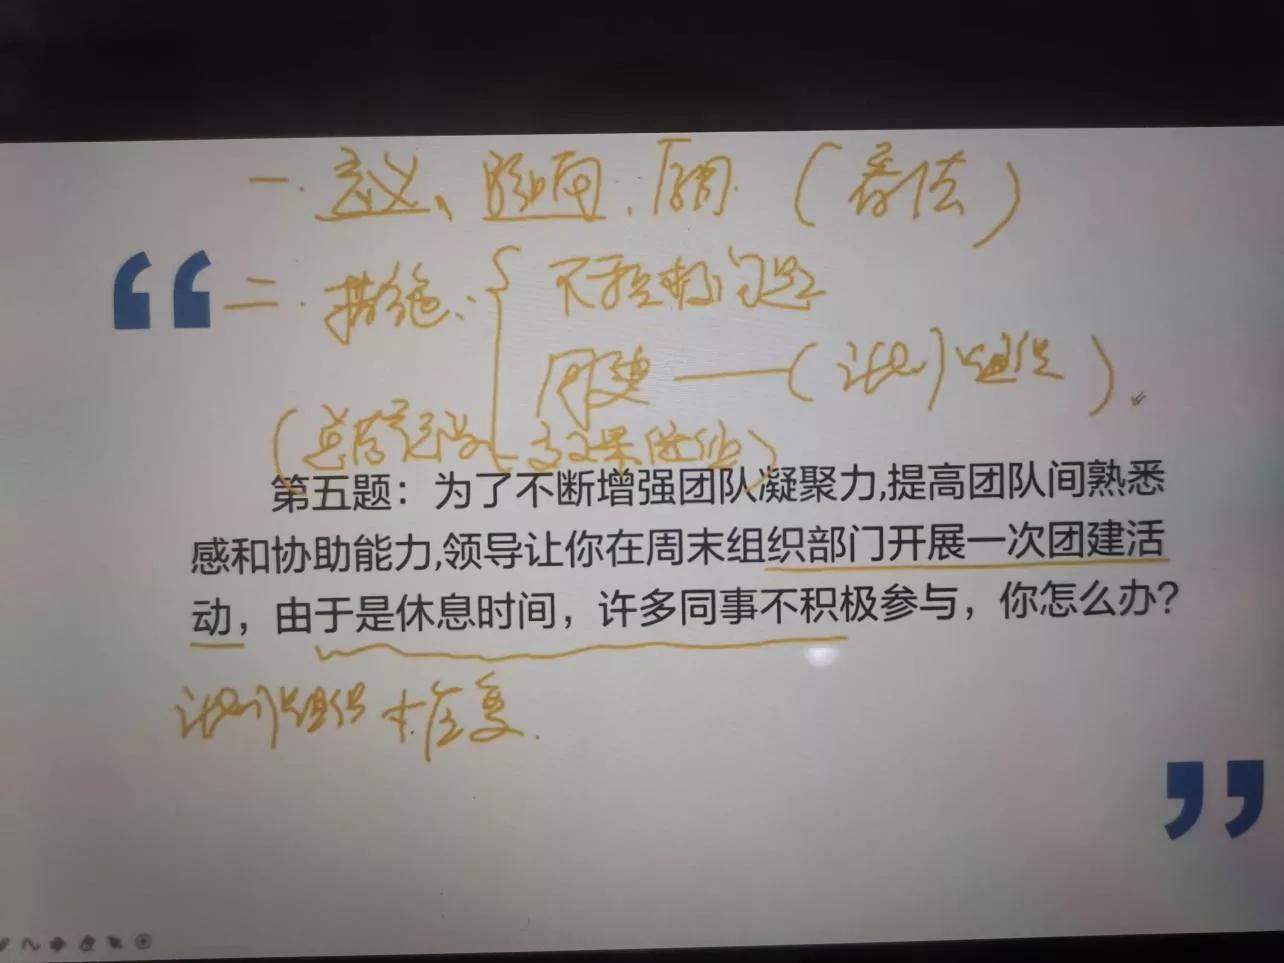 一.意义、影响.原因.(看法)
二.措施、
不积极问题
(计划组织)
效果
第五题：为了不断增强团队凝聚力,提高团队间熟悉
感和协助能力,领导让你在周末组织部门开展一次团建活
动，由于是休息时间，许多同事不积极参与，你怎么办？
计划组织+应变.